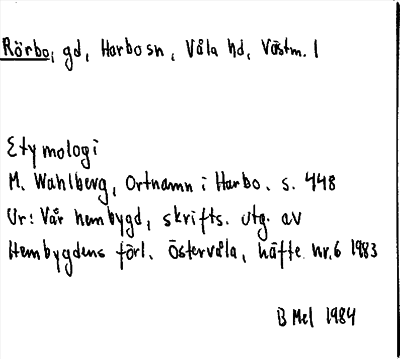 Rörbo, gd, Harbo sn, Våla hd, Västm. l
Etymologi
M. Wahlberg, Ortnamn i Harbo. s. 448
Ur: Vår hembygd, skrifts. utg. av
Hembygdens förl. Östervåla, häfte nr. 6 1983
B Mel 1984